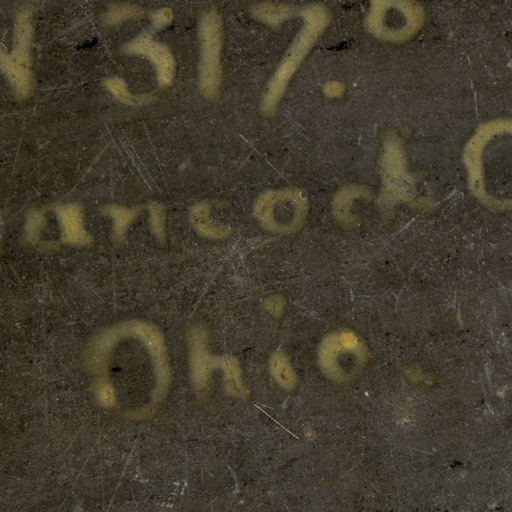 N 317.8
ancock C
Ohio.